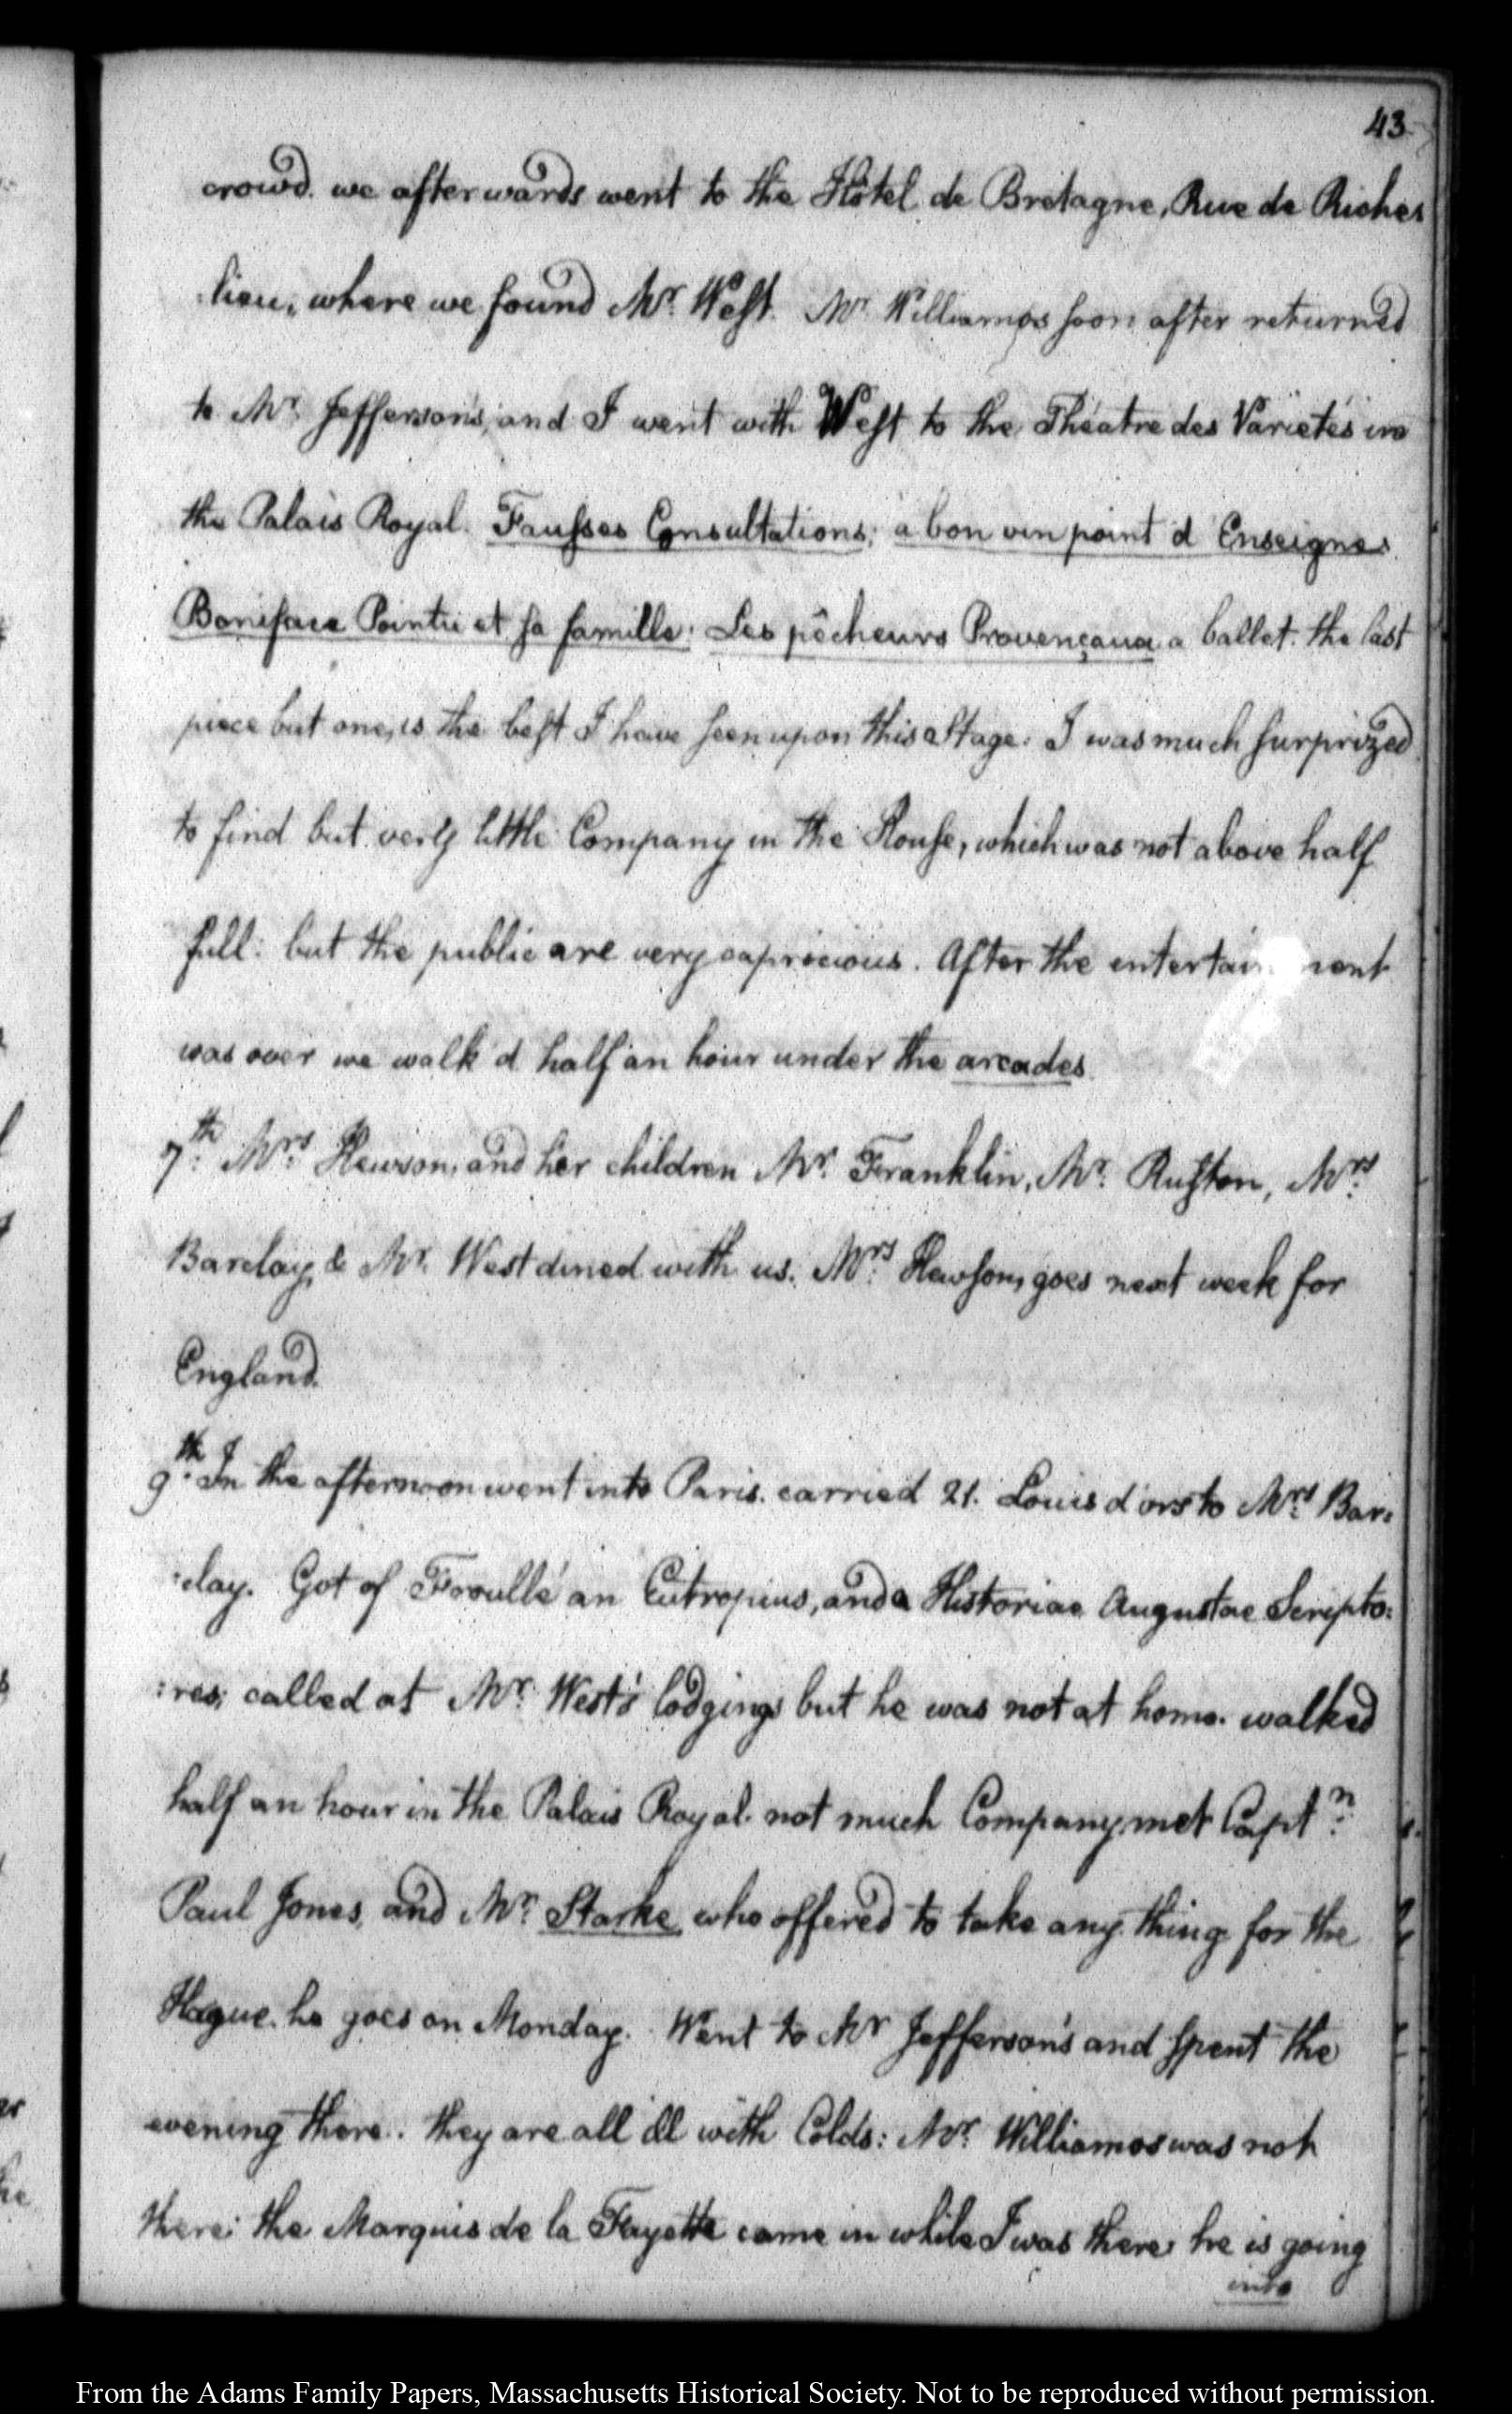 43
crowd. we afterwards went to the Hôtel de Bretagne, Rue de Riche:
:lieu, where we found Mr. West. Mr. Williamos soon after returned
to Mr. Jefferson's, and I went with West to the Théatre des Varietés in
the Palais Royal. Fausses Consultations; à bon vin point d'Enseigne;
Boniface Pointu et sa famille: Les pêcheurs Provençaux a ballet. the last
piece but one, is the best I have seen upon this Stage: I was much surprized
to find but very little Company in the House, which was not above half
full: but the public are very capricious. After the entertainment
was over we walk'd half an hour under the arcades.
7th. Mrs. Hewson, and her children Mr. Franklin, Mr. Ruston, Mrs.
Barclay, & Mr. West dined with us. Mrs. Hewson, goes next week for
England.
9th. In the afternoon went into Paris. carried 21. Louis d'ors to Mrs. Bar:
:clay. Got of Froullé an Eutropius, and a Historiae Augustae Scripto:
:res; called at Mr. West's lodgings but he was not at home. walked
half an hour in the Palais Royal. not much Company, met Captn.
Paul Jones, and Mr. Starke who offered to take any thing for the
Hague. he goes on Monday. Went to Mr Jefferson's and spent the
evening there.. they are all ill with Colds: Mr. Williamos was not
there: the Marquis de la Fayette came in while I was there: he is going
into
From the Adams Family Papers, Massachusetts Historical Society. Not to be reproduced without permission.